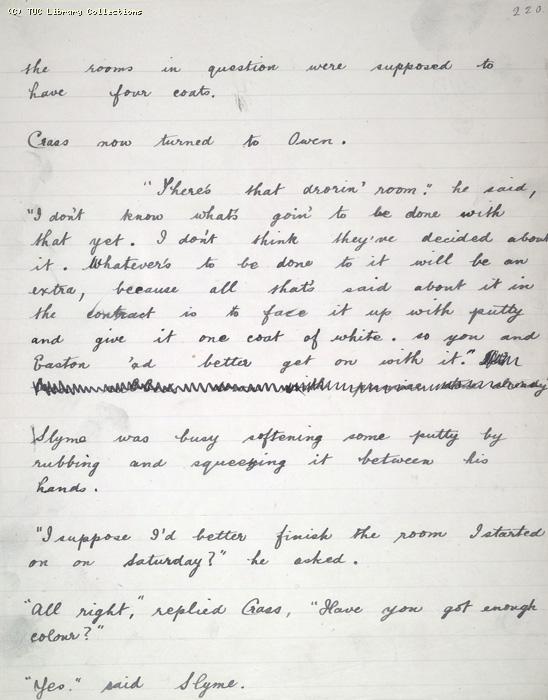 (C) TUC Library Collections
220
the rooms in question were supposed to
have four coats.
Crass now turned to Owen.
"There's that drorin' room." he said,
"I don't know what's goin' to be done with
that yet. I don't think they've decided about
it. Whatever's to be done to it will be an
extra, because all that's said about it in
the contract is to face it up with putty
and give it one coat of white. so you and
Easton 'ad better get on with it."
already
Slyme was busy softening some putty by
rubbing and squeezing it between his
hands.
"I suppose I'd better finish the room I started
on on Saturday?" he asked.
"All right," replied Crass, "Have you got enough
colour?"
"Yes." said Slyme.